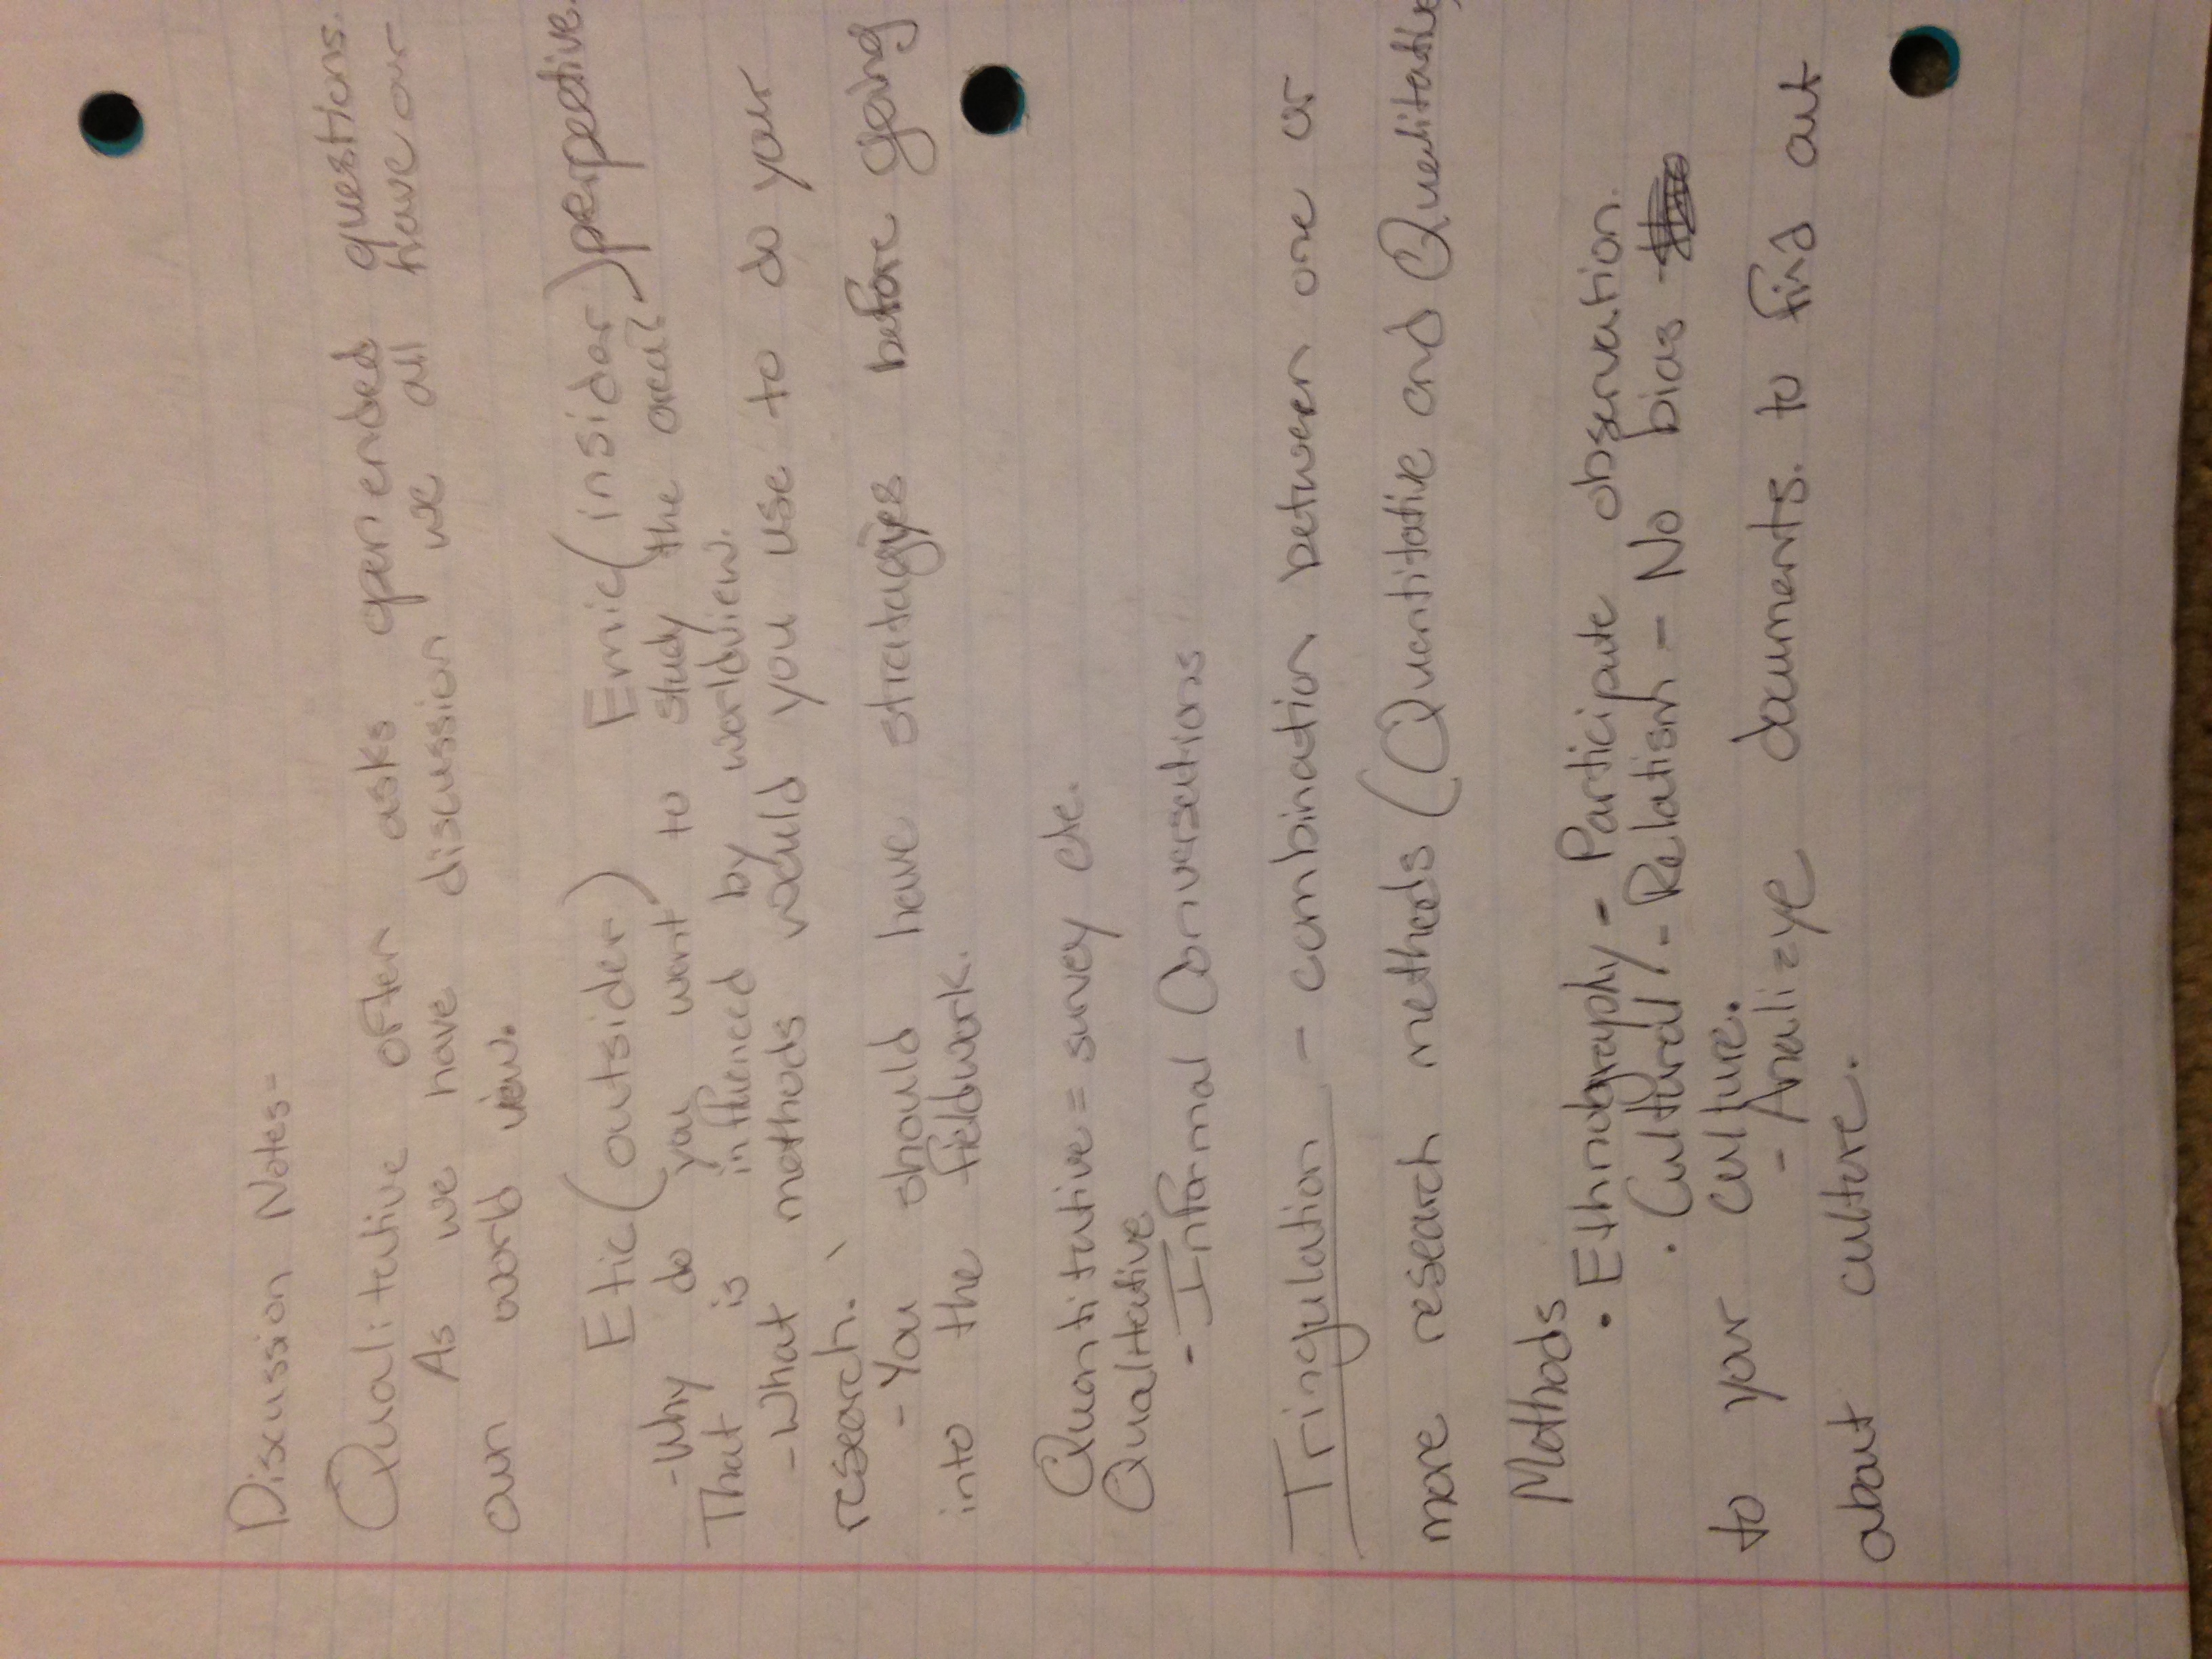 Discussion Notes-
Qualitative often asks open ended questions.
As we have discussion we all have our
own world view.
Etic (outsider) Emic (insider) perpective.
-Why do you want to study the area?
That is influenced by worldview.
-What methods would you use to do your
research.
- You should have stratagies before going
into the fieldwork.
Quantitative = survey etc.
Qualitative
- Informal Conversations
Tringulation - combination between one or
more research methods (Quantitative and Qualitative)
Methods
• Ethnography - Participate observation.
• Cultural - Relatism - No bias
to your culture.
- Analizye documents. to find out
about culture.